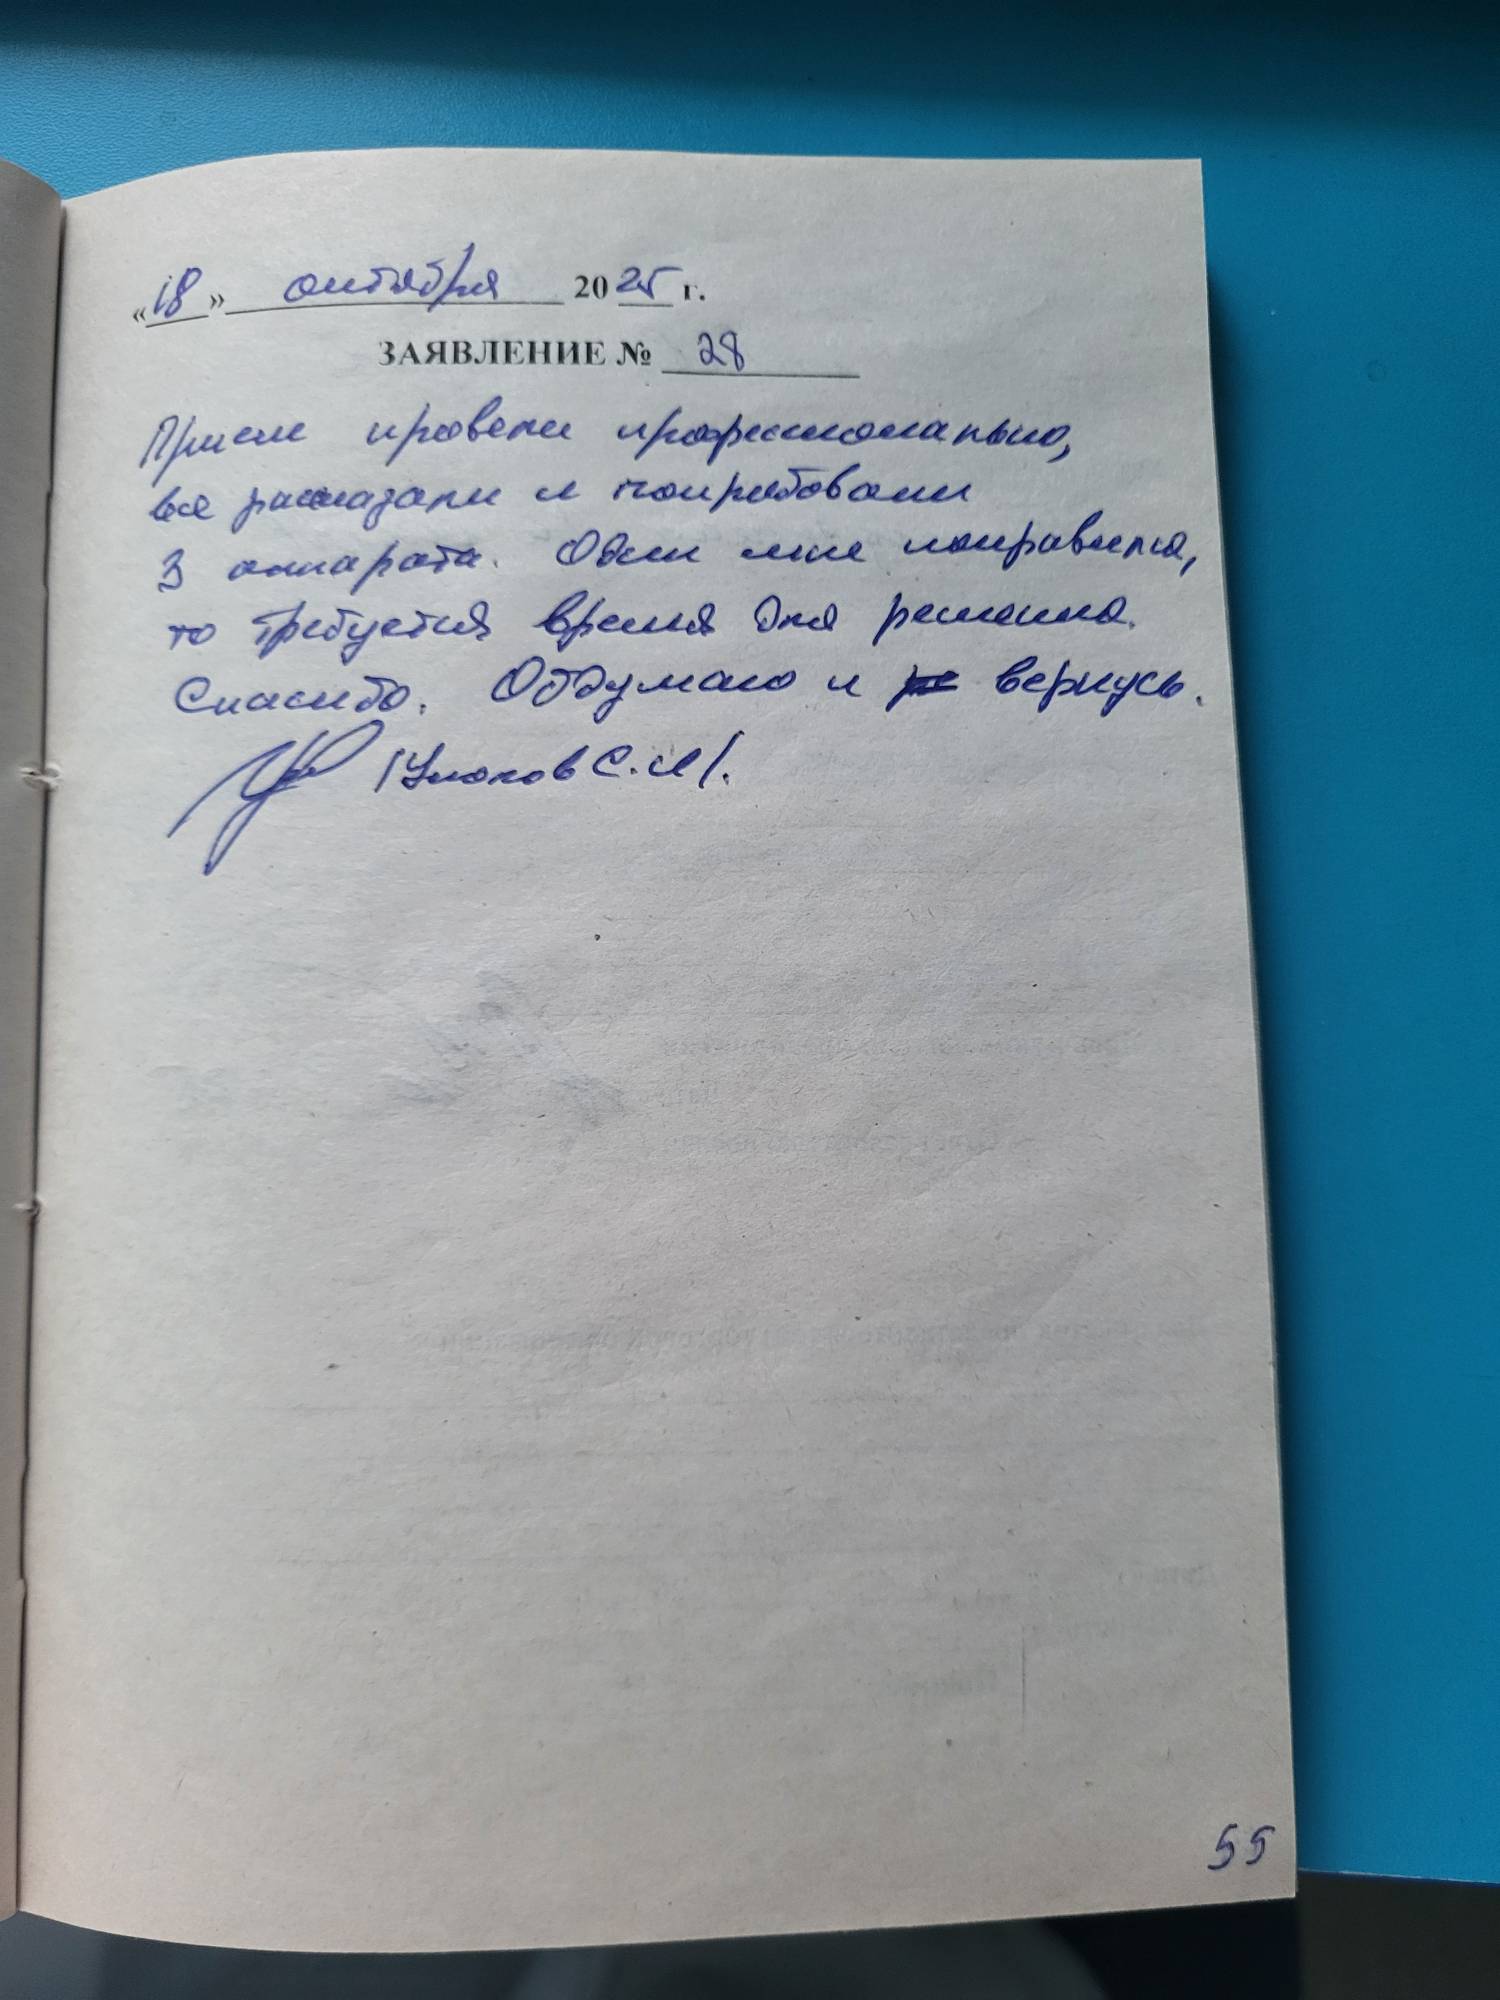 «18» октября 2025 г.
ЗАЯВЛЕНИЕ № 28
Прием провели профессионально,
все рассказали и попробовали
3 аппарата. Один мне понравился,
то требуется время для решения.
Спасибо. Обдумаю и вернусь.
С.И/.
55